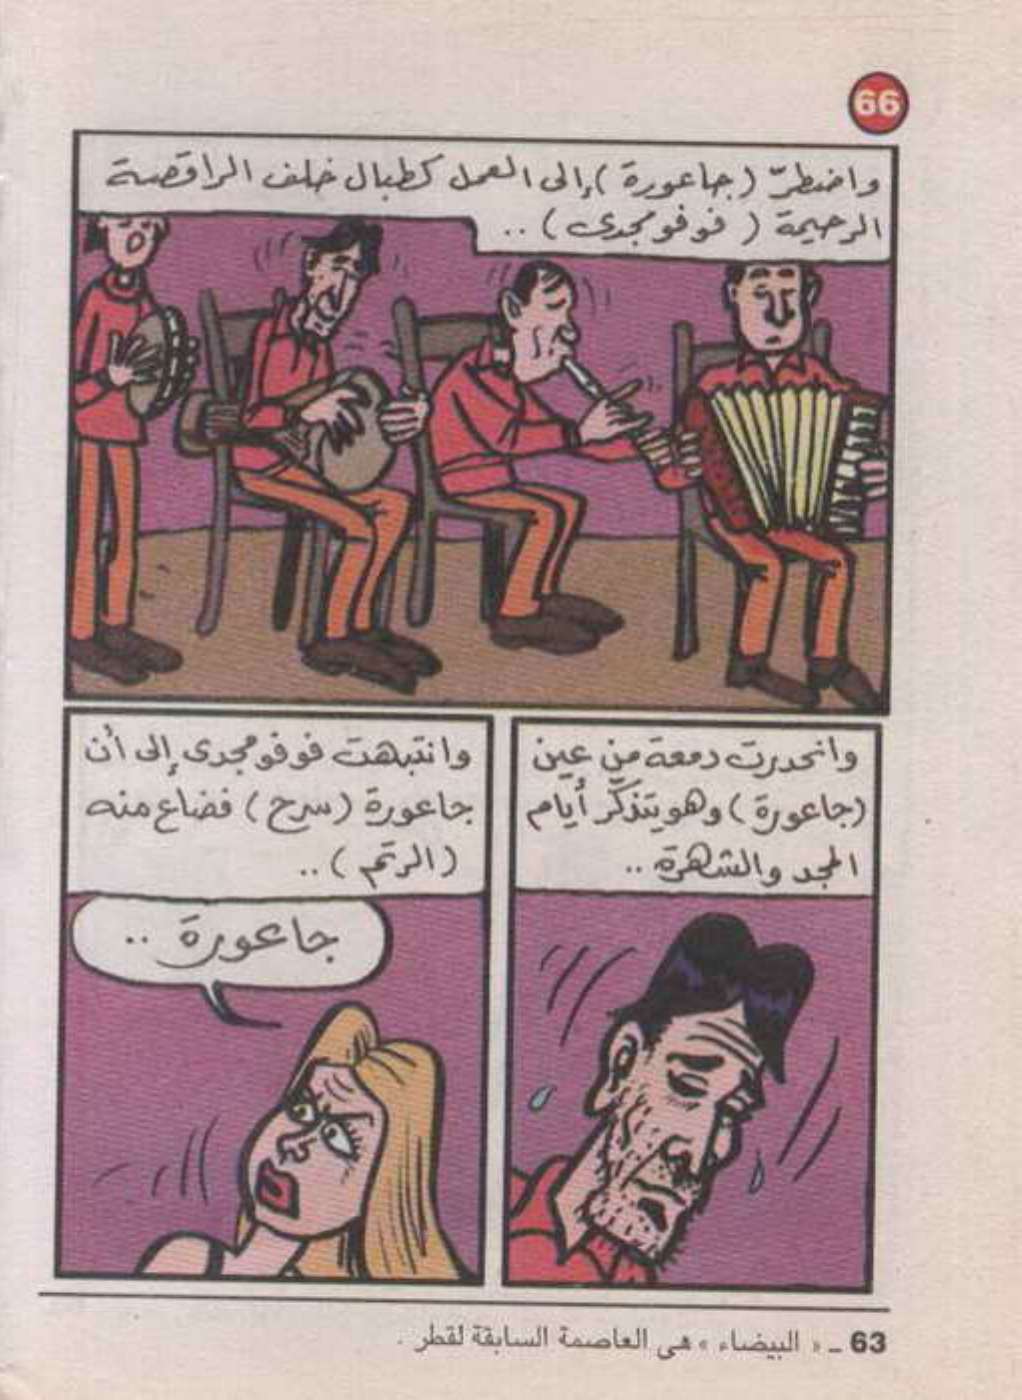 66
واضطرّ (جاعورة) إلى العمل كطبال خلف الراقصة
الرحيمة (فوفو مجدى) ..
وانحدرت دمعة من عين
(جاعورة) وهو يتذكّر أيام
المجد والشهرة ..
وانتبهت فوفو مجدى إلى أن
جاعورة (سرح) فضاع منه
(الرتم) ..
جاعورة ..
63 ــ « البيضاء » هى العاصمة السابقة لقطر .